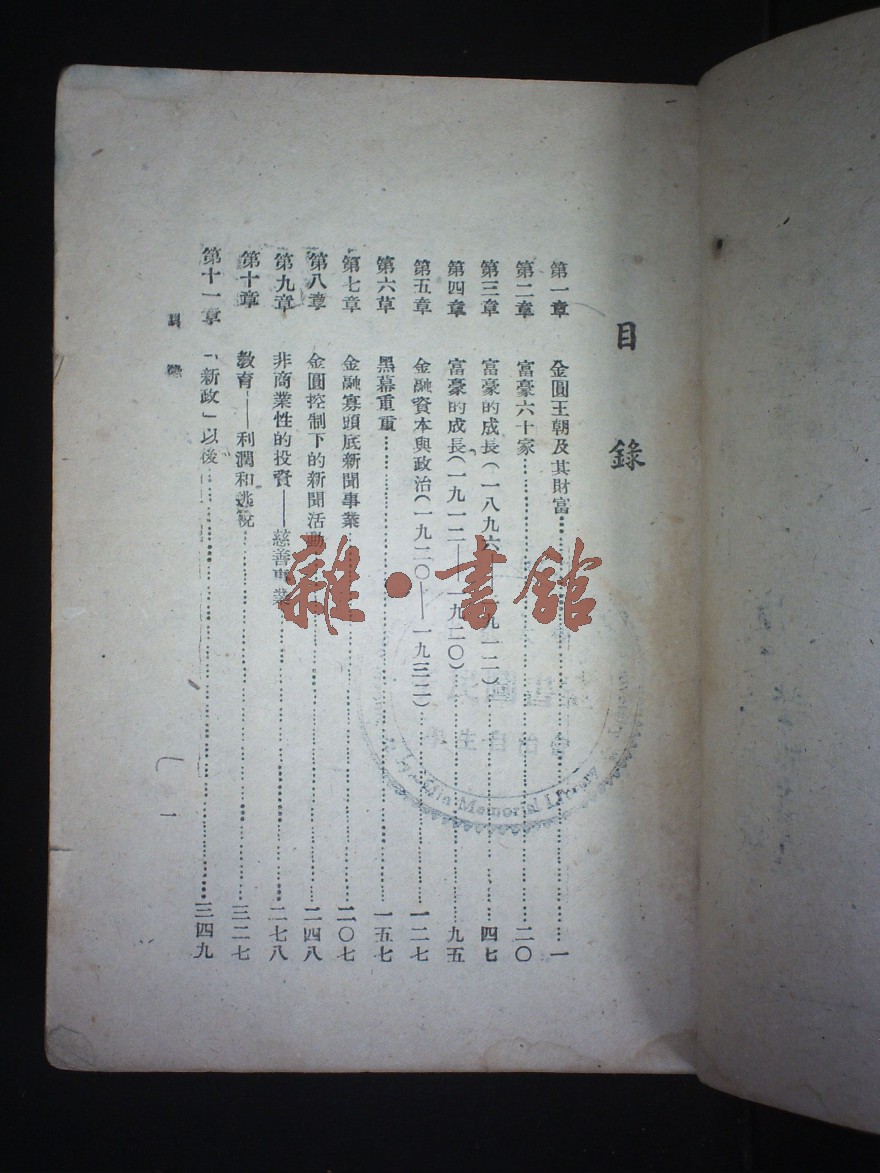 目錄
第一章 金圓王朝及其財富……一
第二章 富豪六十家……二〇
第三章 富豪的成長(一八九六——一九一二)……四七
第四章 富豪的成長(一九一二——一九二〇)……九五
第五章 金融資本與政治(一九二〇——一九三二)……一二七
第六草 黑幕重重……一五七
第七章 金融寡頭底新聞事業……二〇七
第八章 金圓控制下的新聞活動……二四八
第九章 非商業性的投資——慈善事業……二七八
第十章 教育——利潤和逃稅……三二七
第十一章 「新政」以後……三四九
目錄
一
雜·書館
學生自治會
Memorial Library